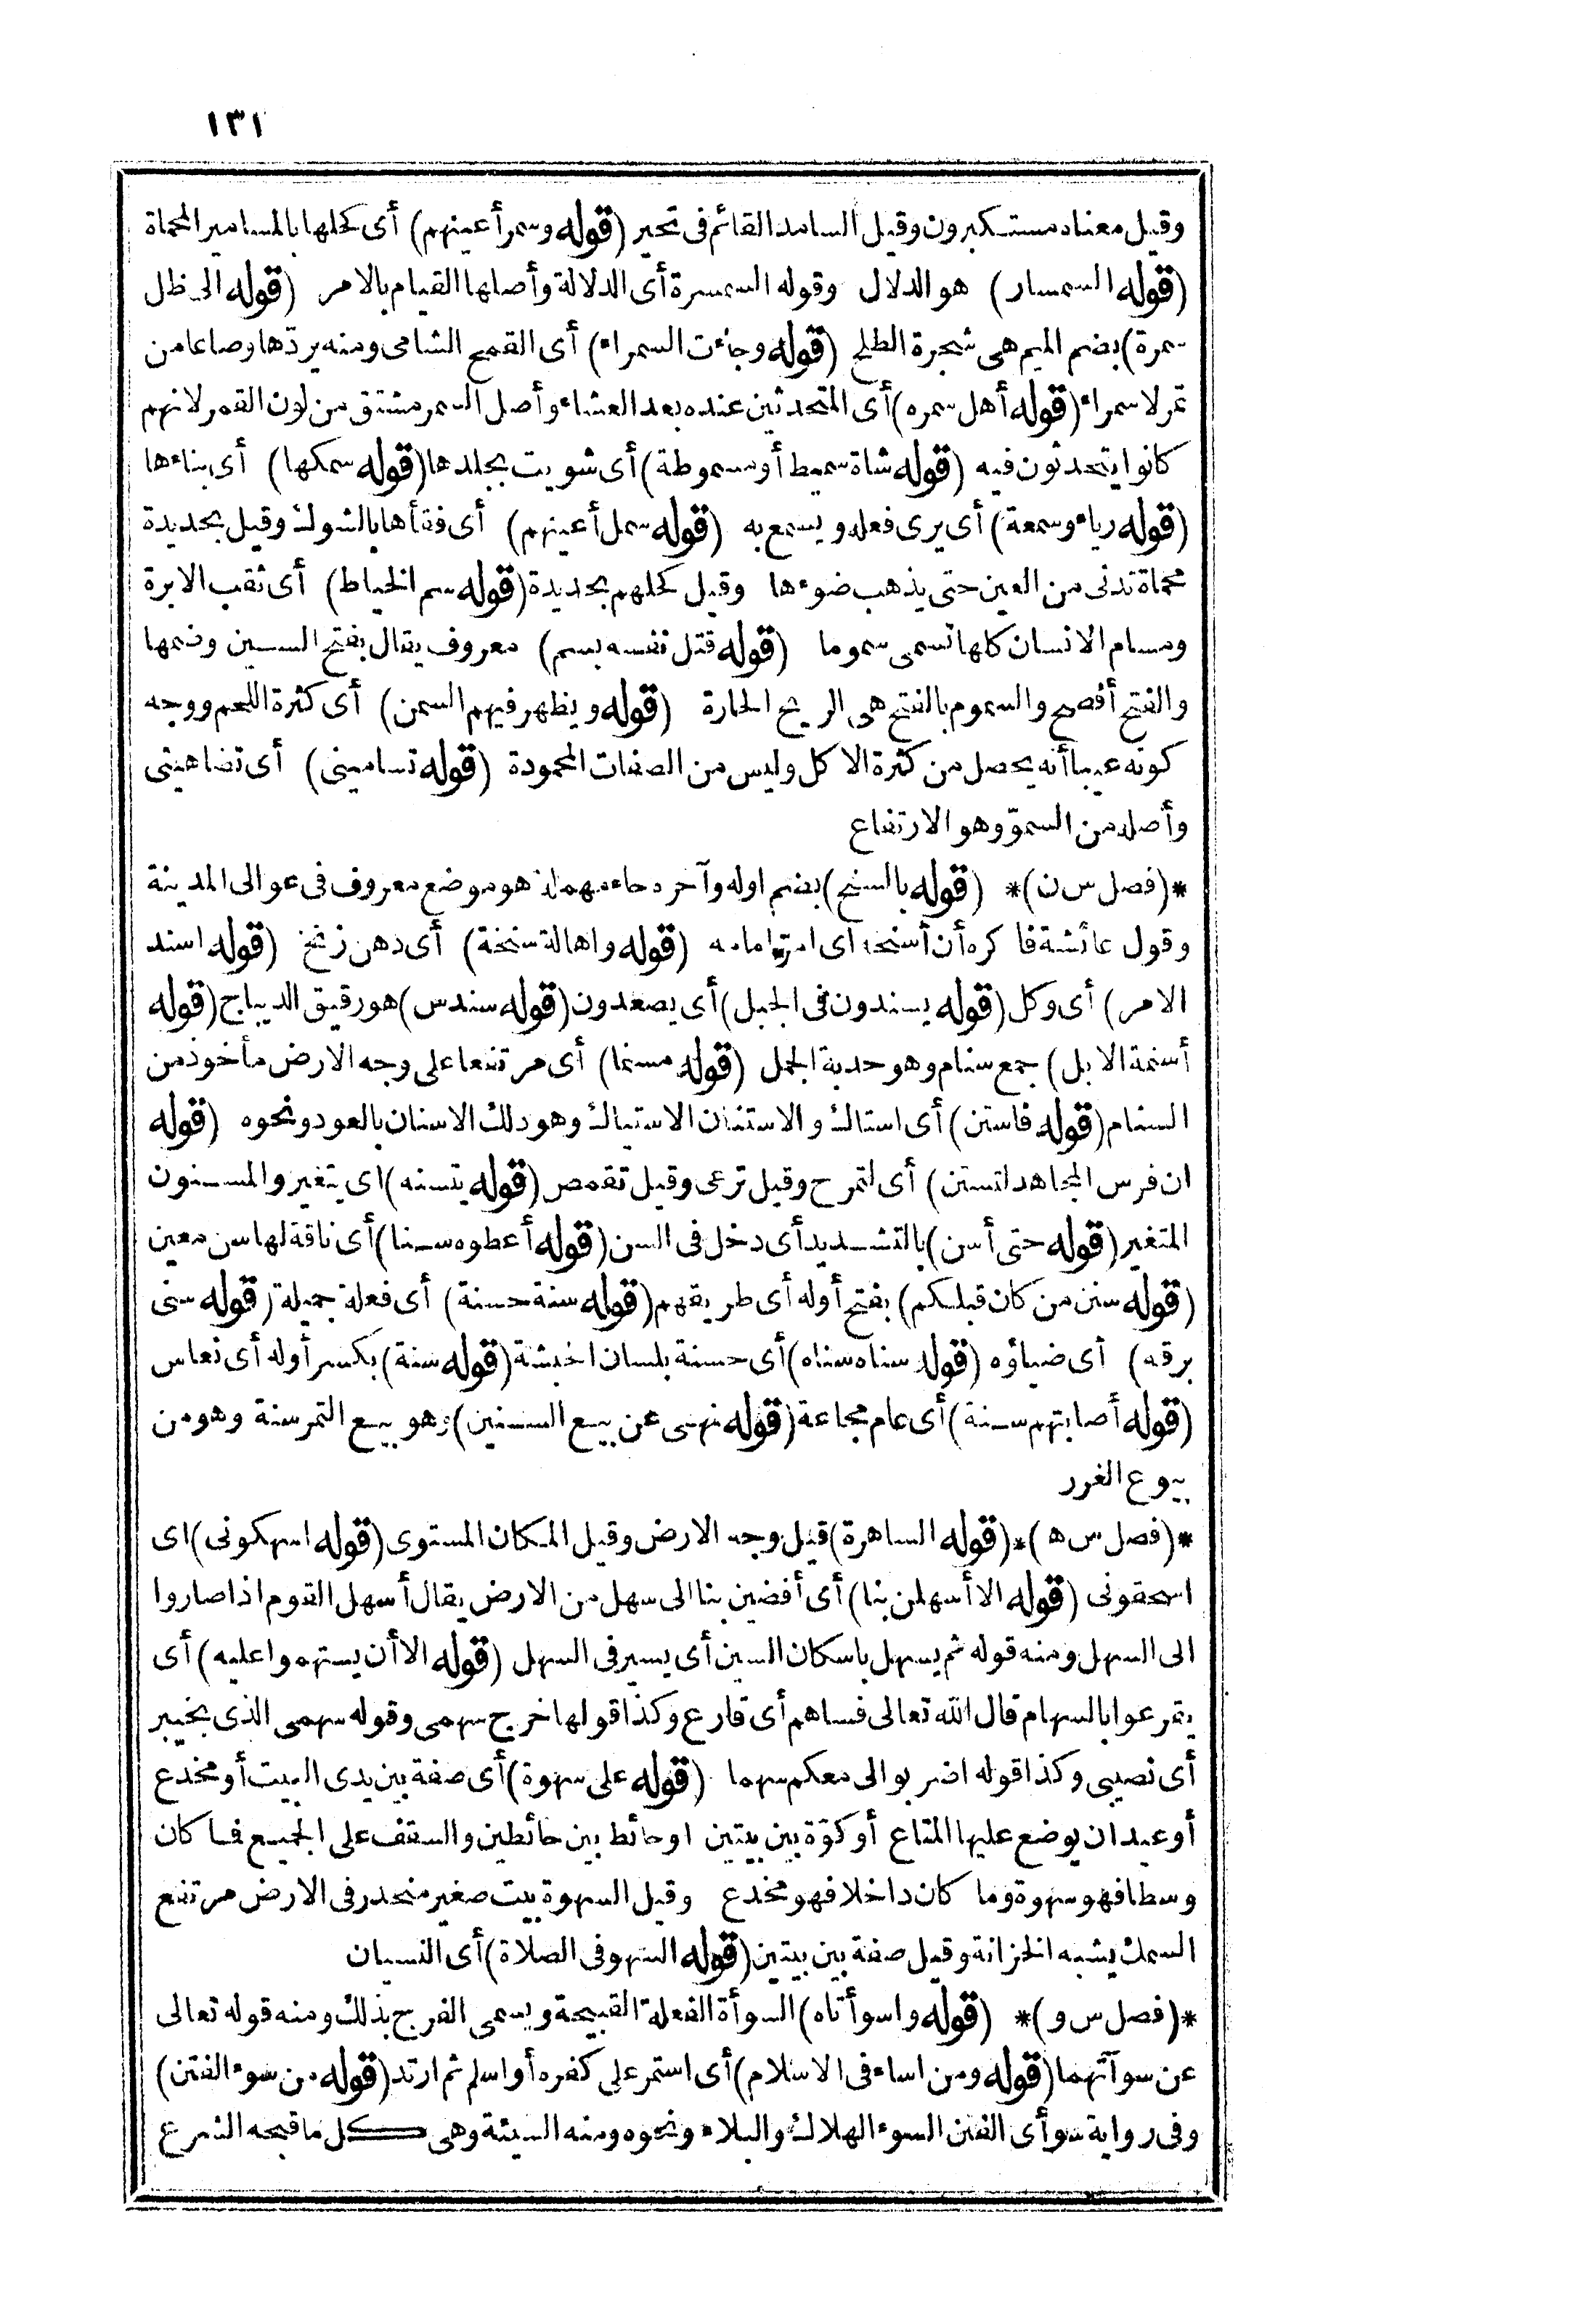 ١٣١
وقيل معناه مستكبرون وقيل السامد القائم فى تحير (قوله وسمر أعينهم) أى كحلها بالمسامير المحماة
(قوله السمسار) هو الدلال وقوله السمسرة أى الدلالة وأصلها القيام بالامر (قوله الى ظل
سمرة) بضم الميم هى شجرة الطلح (قوله وجاءت السمراء) أى القمح الشامى ومنه يردّها وصاعا من
تمر لا سمراء (قوله أهل سمره) أى المتحدثين عنده بعد العشاء وأصل السمر مشتق من لون القمر لانهم
كانوا يتحدثون فيه (قوله شاة سميط أو مسموطة) أى شويت بجلدها (قوله سمكها) أى بناءها
(قوله رياء وسمعة) أى يرى فعله ويسمع به (قوله سمل أعينهم) أى فقأها بالشوك وقيل بحديدة
محماة تدنى من العين حتى يذهب ضوءها وقيل كحلهم بحديدة (قوله سم الخياط) أى ثقب الابرة
ومسام الانسان كلها تسمى سموما (قوله قتل نفسه بسم) معروف يقال بفتح السين وضمها
والفتح أفصح والسموم بالفتح هى الريح الحارة (قوله ويظهر فيهم السمن) أى كثرة اللحم ووجه
كونه عيبا أنه يحصل من كثرة الاكل وليس من الصفات المحمودة (قوله تسامينى) أى تضاهينى
وأصله من السموّ وهو الارتفاع
*(فصل س ن)* (قوله بالسنح) بضم اوله وآخره حاء مهملة هو موضع معروف فى عوالى المدينة
وقول عائشة فا كره أن أسنحه اى امرّ امامه (قوله واهالة سنخة) أى دهن زنخ (قوله اسند
الامر) أى وكل (قوله يسندون فى الجبل) أى يصعدون (قوله سندس) هو رقيق الديباج (قوله
أسنمة الابل) جمع سنام وهو حدبة الجمل (قوله مسنما) أى مرتفعا على وجه الارض مأخوذ من
السنام (قوله فاستن) أى استاك والاستنان الاستياك وهو دلك الاسنان بالعود ونحوه (قوله
ان فرس المجاهد لتستن) أى لتمرح وقيل ترعى وقيل تقمص (قوله يتسنه) اى يتغير والمسنون
المتغير (قوله حتى أسن) بالتشديد أى دخل فى السن (قوله أعطوه سنا) أى ناقة لها سن معين
(قوله سنن من كان قبلكم) بفتح أوله أى طريقهم (قوله سنة حسنة) أى فعلة جميلة (قوله سنى
برقه) أى ضياؤه (قوله سناه سناه) أى حسنة بلسان الحبشة (قوله سنة) بكسر أوله أى نعاس
(قوله أصابتهم سنة) أى عام مجاعة (قوله نهى عن بيع السنين) هو بيع التمر سنة وهو من
بيوع الغرر
*(فصل س ه)* (قوله الساهرة) قيل وجه الارض وقيل المكان المستوى (قوله اسهكونى) اى
اسحقونى (قوله الا أسهلن بنا) أى أفضين بنا الى سهل من الارض يقال أسهل القوم اذا صاروا
الى السهل ومنه قوله ثم يسهل باسكان السين أى يسير فى السهل (قوله الا أن يستهموا عليه) أى
يقترعوا بالسهام قال الله تعالى فساهم أى قارع وكذا قولها خرج سهمى وقوله سهمى الذى بخيبر
أى نصيبى وكذا قوله اضربوا لى معكم سهما (قوله على سهوة) أى صفة بين يدى البيت أو مخدع
أو عيدان يوضع عليها المتاع أو كوّة بين بيتين او حائط بين حائطين والسقف على الجميع فما كان
وسطا فهو سهوة وما كان داخلا فهو مخدع وقيل السهوة بيت صغير منحدر فى الارض مرتفع
السمك يشبه الخزانة وقيل صفة بين بيتين (قوله السهو فى الصلاة) أى النسيان
*(فصل س و)* (قوله واسوأتاه) السوأة الفعلة القبيحة ويسمى الفرج بذلك ومنه قوله تعالى
عن سوآتهما (قوله ومن اساء فى الاسلام) أى استمر على كفره أو اسلم ثم ارتد (قوله من سوء الفتن)
وفى رواية سوأى الفتن السوء الهلاك والبلاء ونحوه ومنه السيئة وهى كل ما قبحه الشرع